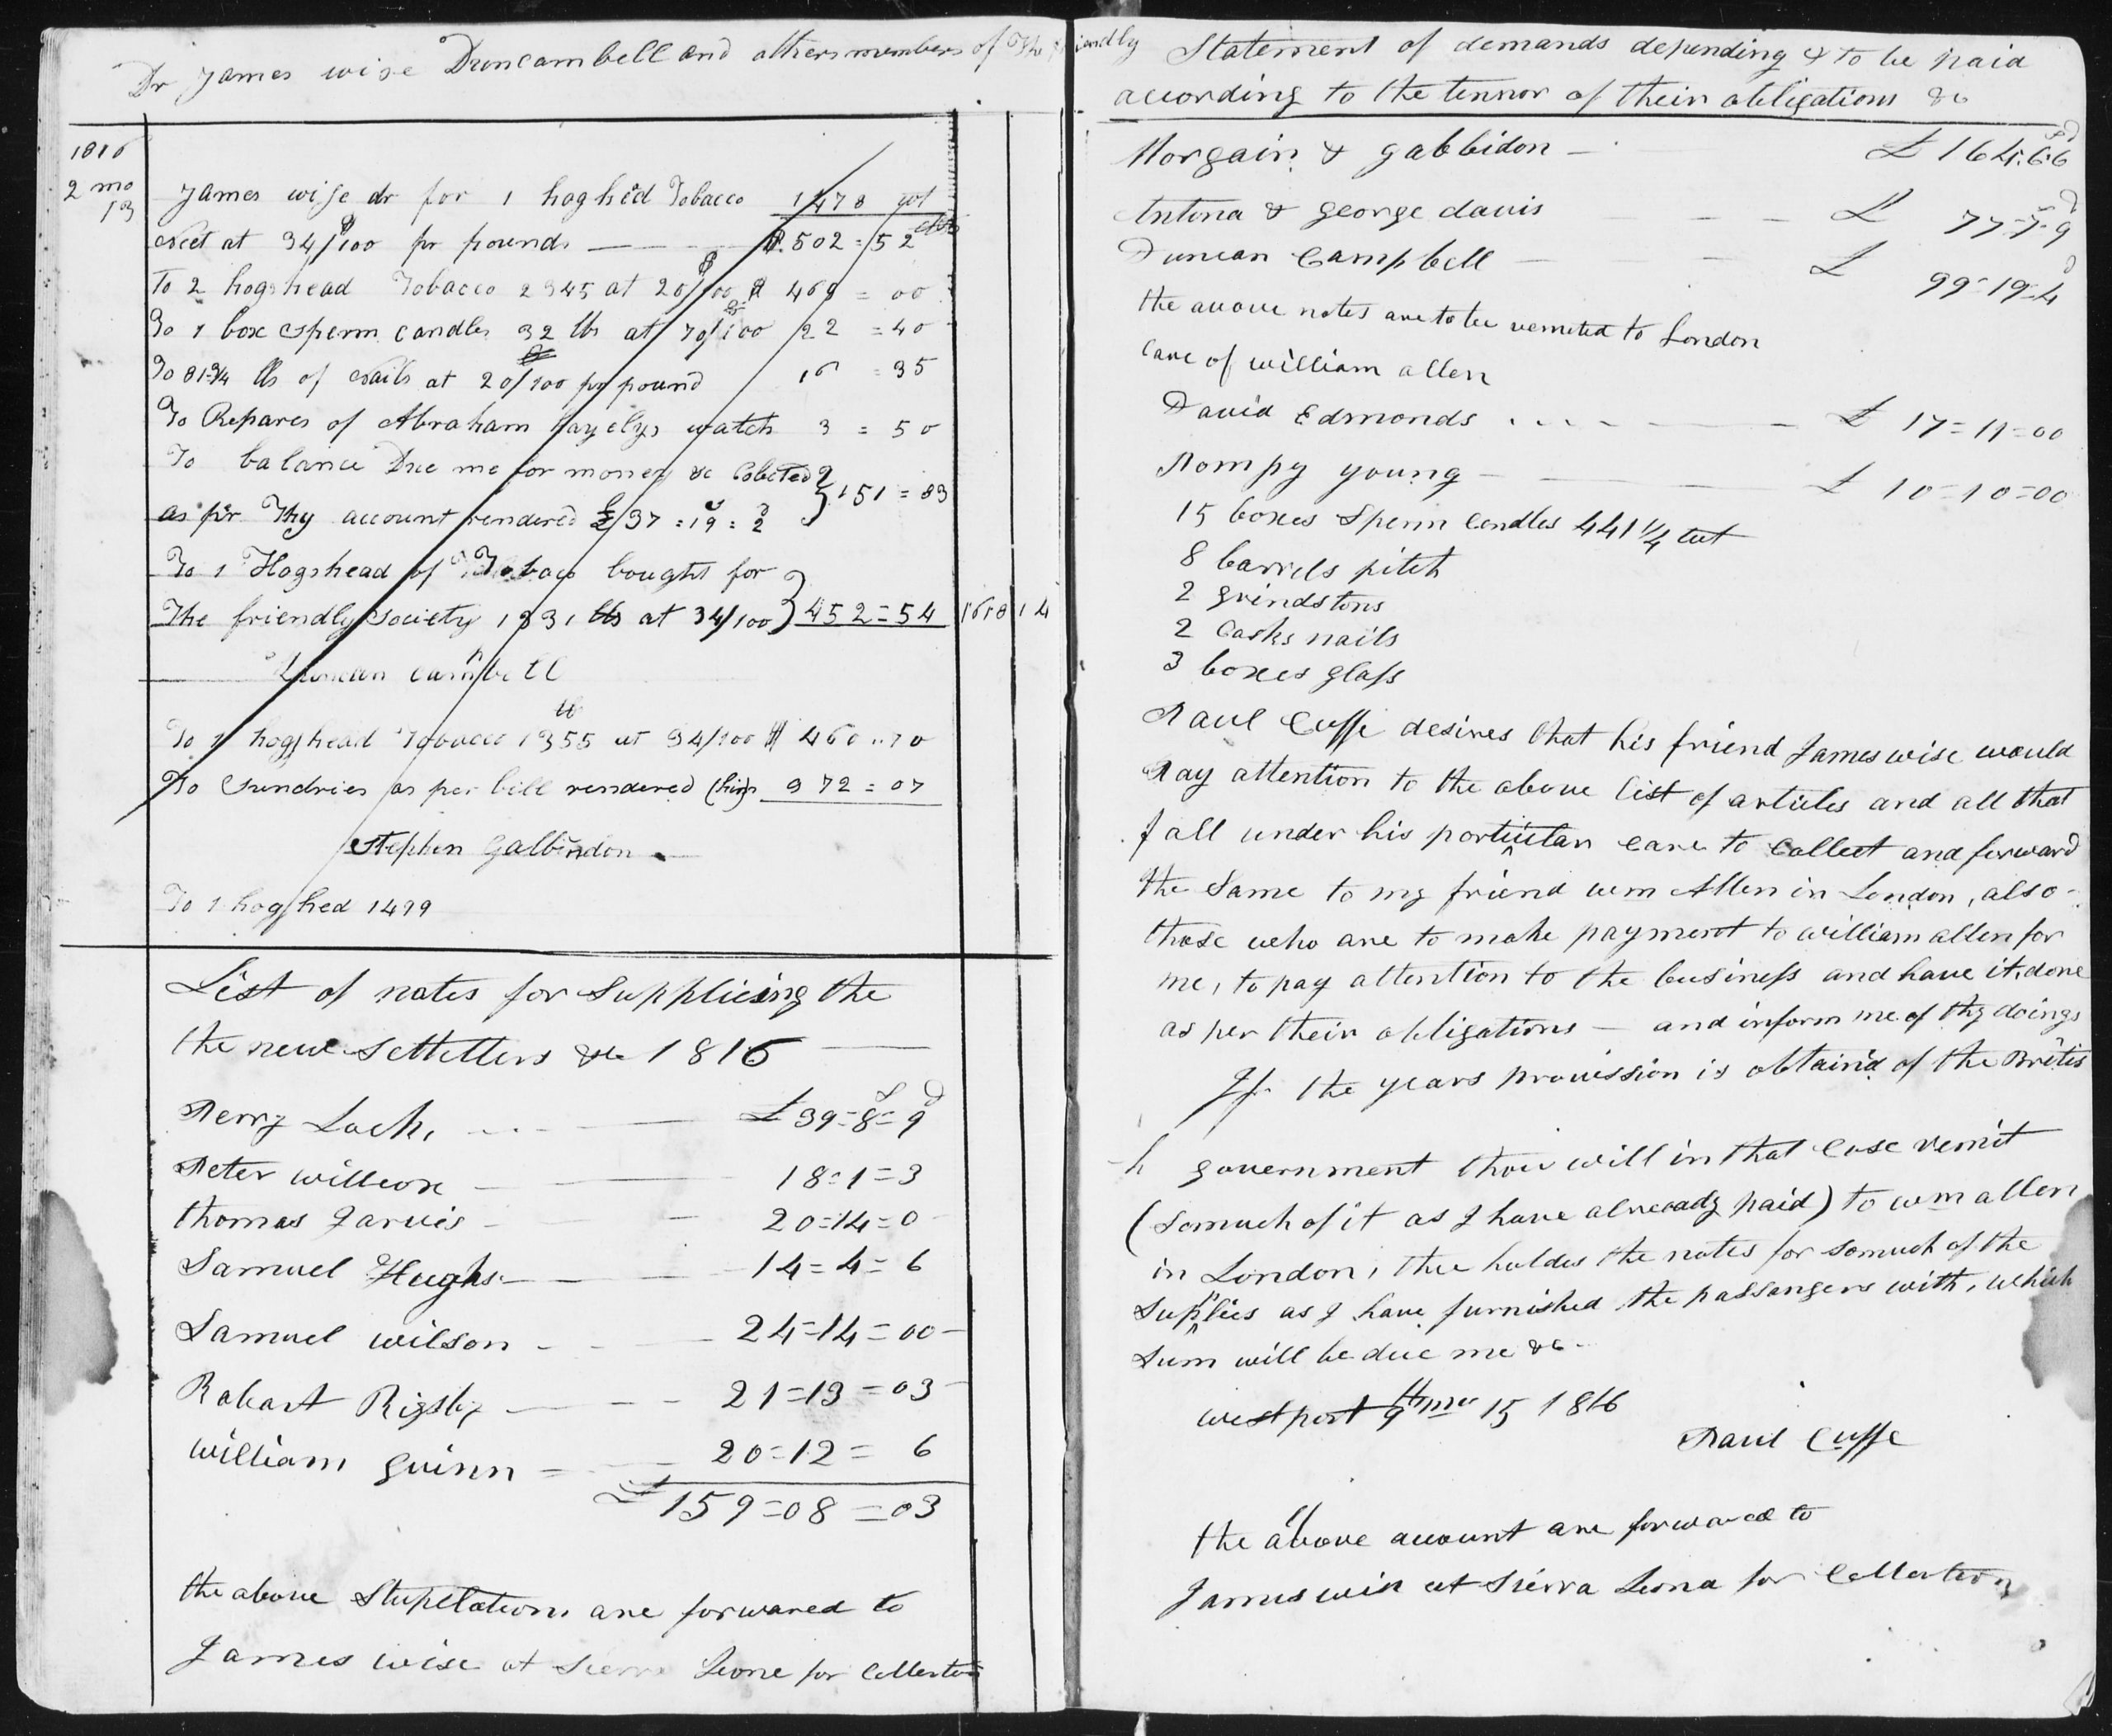 Dr James wise Duncambell and others members of The friendly
1816
2 mo
13
James wise dr for 1 hoghed Tobacco 1478 wt
Neet at 34/100 pr pounds $ 502=52 cts
To 2 hogshead Tobacco 2345 at 20/100 $ 469 = 00
To 1 box Sperm Candles 32 lbs at 70/100 22 = 40
To 81 3/4 lbs of Nails at 20/100 pr pound 16 = 35
To Repares of Abraham watch 3 = 50
To balance Due me for money &c Colected
as pr Thy account rendered £ 37 = 19 = 2 } 151 = 83
To 1 Hogshead of Tobaco bought for
The friendly Society 1331 lbs at 34/100 } 452=54 1618 14
Duncan Cambell
To 1 hogshead Tobacco 1355 lb at 34/100 $ 460..70
To Sundries as per bill rendered 372=07
Stephen Galbindon
To 1 hogshed 1499
List of notes for Supplieing the
the new Settetlers &c 1816
Perry Lock, £ 39=8=9
Peter willcox 18=1=3
thomas Jarvis 20=14=0
Samuel Hughs 14=4=6
Samuel wilson 24=14=00
Robart Rigsby 21=13=03
William guinn 20=12=6
£ 159=08=03
the above Stupelations are forwared to
James wise at Sierra Leone for Collection
Statement of demands depending & to be paid
according to the tennor of their obligations &c
Morgain & gabbidon £ 164.6.6
Antona & george davis £ 77=7=9
Duncan Campbell £ 99=19=4
the above notes are to be remited to London
Care of william allen
David Edmonds £ 17=11=00
Pompy young £ 10=10=00
15 boxes Sperm Candles 441 1/4 wt
8 barrels pitch
2 grindstons
2 Casks nails
3 boxes glass
Paul Cuffe desires that his friend James wise would
Pay attention to the above list of articles and all that
fall under his porticular care to Collect and forward
the Same to my friend wm Allen in London, also
those who are to make payment to william allen for
me, to pay attention to the business and have it done
as per their obligations — and inform me of thy doings
If the years provission is obtain'd of the Britis
-h government thou will in that Case remit
(Somuch of it as I have alreeady paid) to wm allen
in London, thee holdes the notes for somuch of the
Supplies as I have furnished the passangers with, which
Sum will be due me &c
westport 9th mo 15 1816
Paul Cuffe
the above account are forwared to
James wise at Sierra Leona for Collection